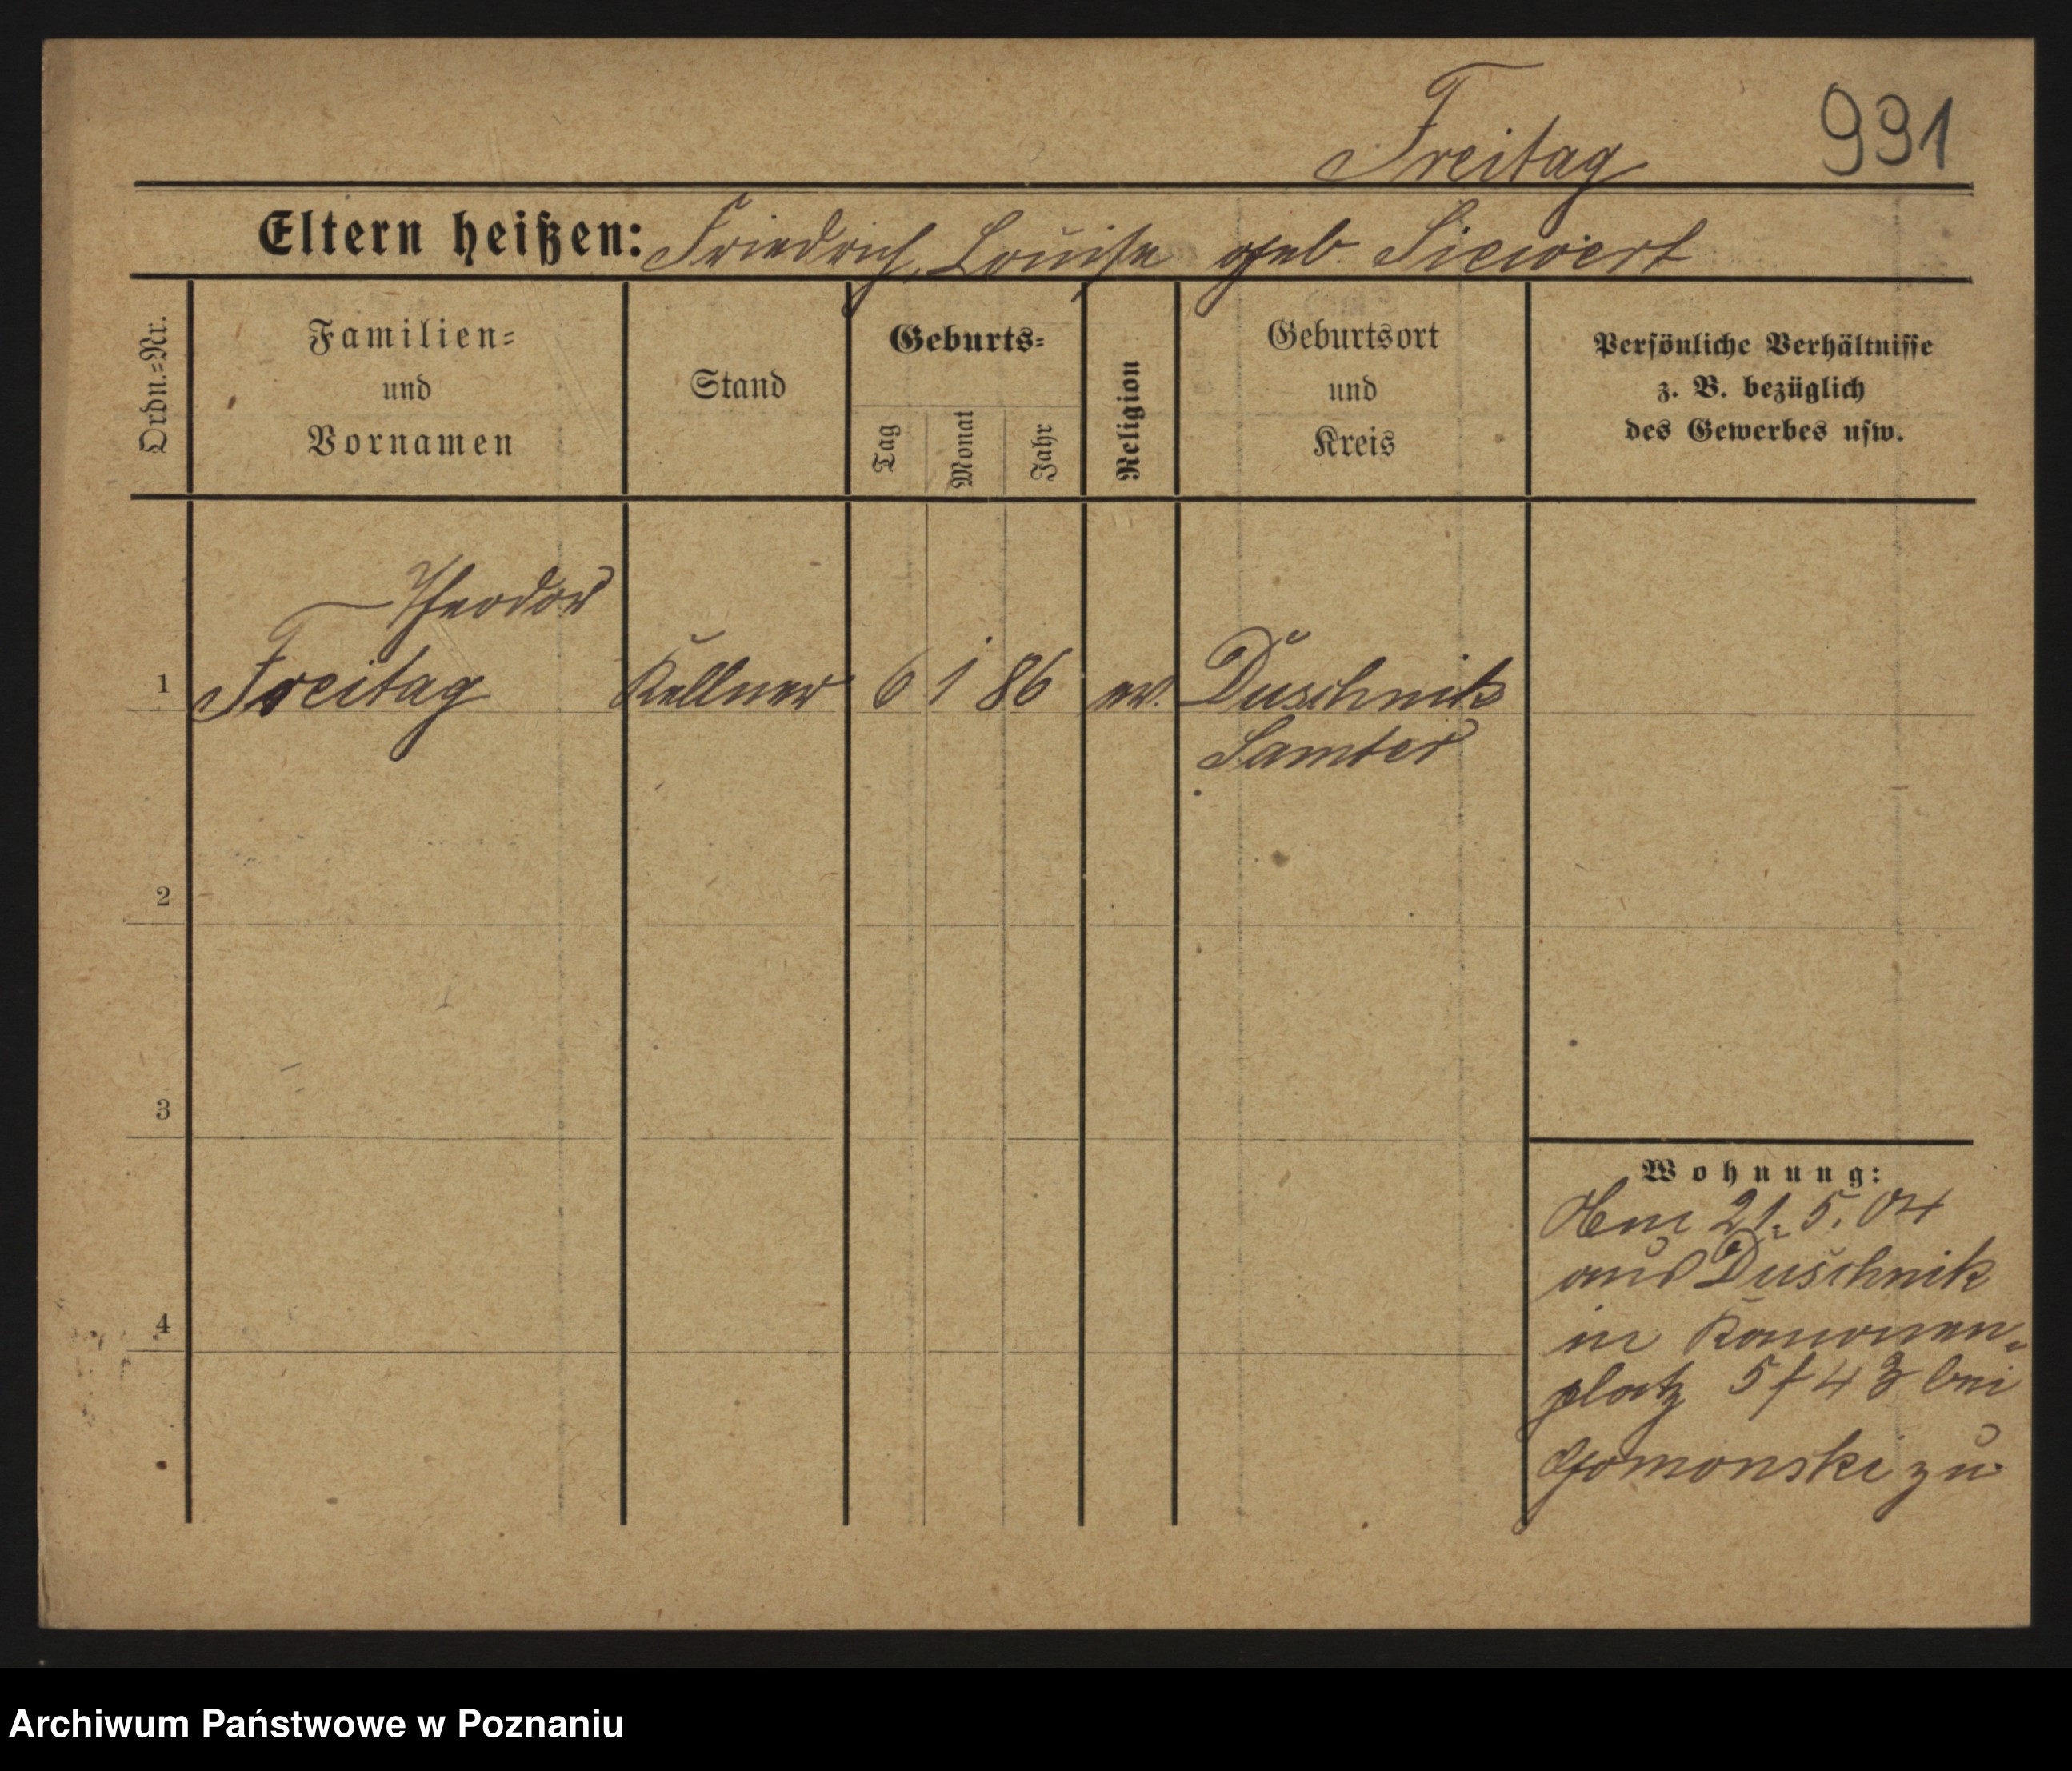 Freitag
991
Eltern heißen: Friedrich, Louise geb. Siewert
Ordn.=Nr.
Familien=
und
Vornamen
Stand
Geburts=
Tag
Monat
Jahr
Religion
Geburtsort
und
Kreis
Persönliche Verhältnisse
z. B. bezüglich
des Gewerbes usw.
Theodor
1 Freitag Kellner 6 1 86 ev. Duschnik
Samter
2
3
4
Wohnung:
Am 21.5.04
aus Duschnik
in Kanonen=
platz 5 f 43 bei
Gomonski zu
Archiwum Państwowe w Poznaniu